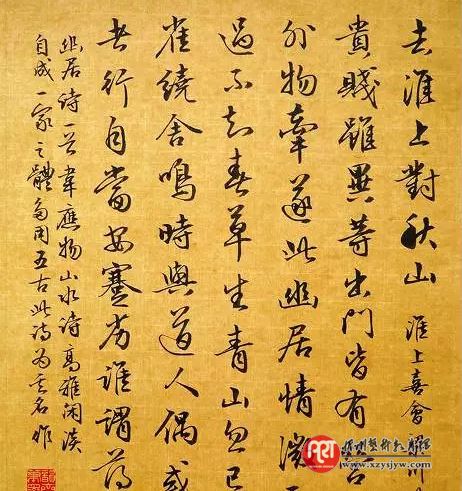 去淮上對秋山 淮上喜會梁川
貴賤雖異等出門皆有營
外物牽遂此幽居情微
過不知春草生青山忽已
雀繞舍鳴時與道人偶或
者行自當安蹇劣誰謂薄
幽居诗一首韋應物山水诗高雅闲淡
自成一家之體多用五古此诗为其名作
www.xzysjyw.com